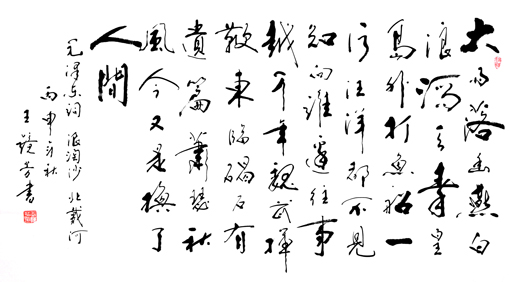 大雨落幽燕白
浪滔天秦皇
島外打魚船一
片汪洋都不見
知向誰邊往事
越千年魏武揮
鞭東臨碣石有
遺篇蕭瑟秋
風今又是換了
人間
毛澤东词 浪淘沙 北戴河
丙申 秋
王 芳書